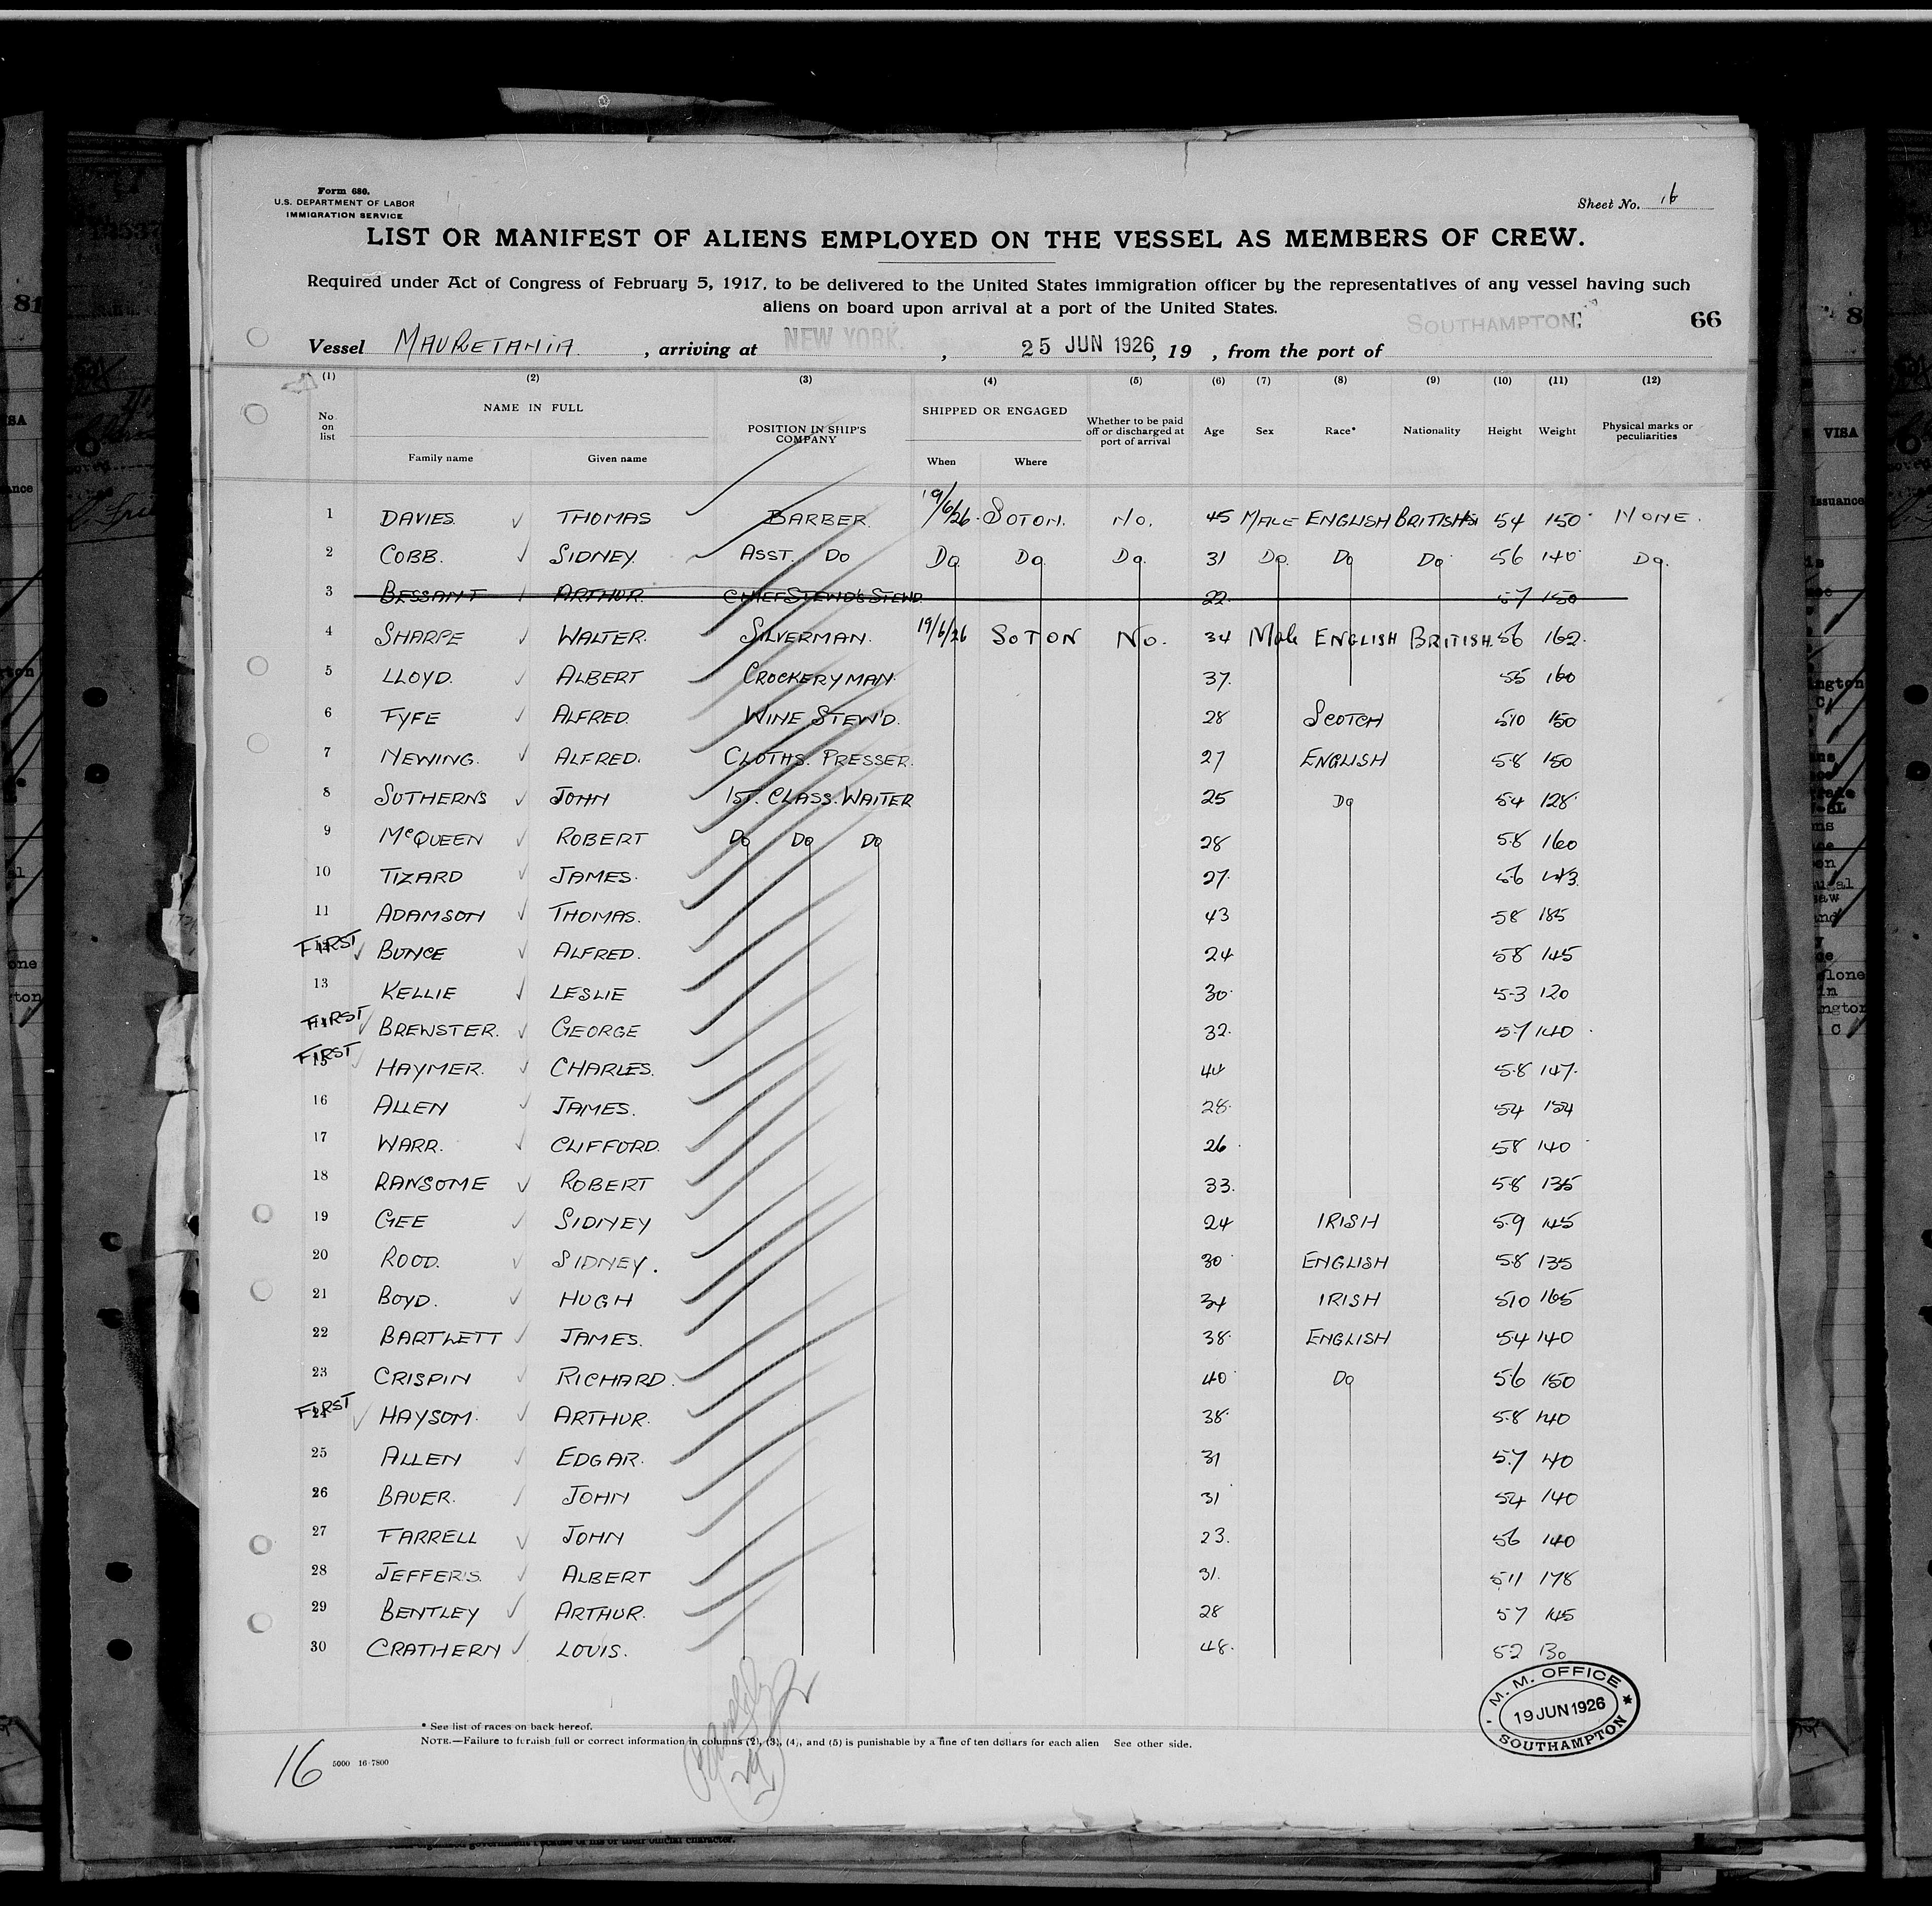 Form 680.
U.S. DEPARTMENT OF LABOR
IMMIGRATION SERVICE
Sheet No. 16
LIST OR MANIFEST OF ALIENS EMPLOYED ON THE VESSEL AS MEMBERS OF CREW.
Required under Act of Congress of February 5, 1917, to be delivered to the United States immigration officer by the representatives of any vessel having such
aliens on board upon arrival at a port of the United States.
66
Vessel MAURETANIA , arriving at NEW YORK. , 25 JUN 1926, 19 , from the port of SOUTHAMPTON
(1) (2) (3) (4) (5) (6) (7) (8) (9) (10) (11) (12)
No. on list NAME IN FULL Family name Given name POSITION IN SHIP'S COMPANY SHIPPED OR ENGAGED When Where Whether to be paid off or discharged at port of arrival Age Sex Race* Nationality Height Weight Physical marks or peculiarities
1 DAVIES. THOMAS BARBER. 19/6/26. SOTON. No. 45 MALE ENGLISH BRITISH 54 150 NONE.
2 COBB. SIDNEY. ASST. DO Do Do. Do. 31 Do. Do Do 56 140 Do.
3 BESSANT ARTHUR. CHIEF STEWD'S STEWD. 22. 57 150
4 SHARPE WALTER. SILVERMAN. 19/6/26 SOTON No. 34 Male ENGLISH BRITISH. 56 162.
5 LLOYD. ALBERT CROCKERYMAN. 37. 55 160
6 FYFE ALFRED. WINE STEW'D. 28 SCOTCH 510 150
7 NEWING. ALFRED. CLOTHS. PRESSER. 27 ENGLISH 5.8 150
8 SOTHERNS JOHN 1ST. CLASS. WAITER 25 Do 5.4 128
9 McQUEEN ROBERT Do Do Do 28 5.8 160
10 TIZARD JAMES. 27. 5.6 143.
11 ADAMSON THOMAS. 43 58 185
FIRST BUNCE ALFRED. 24 58 145
13 KELLIE LESLIE 30. 5-3 120
FIRST BREWSTER. GEORGE 32. 5.7 140
FIRST 15 HAYMER. CHARLES. 44 5.8 147.
16 ALLEN JAMES. 28. 54 154
17 WARR. CLIFFORD. 26 58 140
18 RANSOME ROBERT 33. 5.8 135
19 GEE SIDNEY 24 IRISH 5.9 145
20 ROOD. SIDNEY. 30 ENGLISH 5.8 135
21 BOYD. HUGH 34 IRISH 510 165
22 BARTLETT JAMES. 38. ENGLISH 5.4 140
23 CRISPIN RICHARD. 40 Do 5.6 150
FIRST 24 HAYSOM. ARTHUR. 38. 5.8 140
25 ALLEN EDGAR. 31 5.7 40
26 BAUER. JOHN 31 54 140
27 FARRELL JOHN 23. 56 140
28 JEFFERIS. ALBERT 31. 511 178
29 BENTLEY ARTHUR. 28 57 145
30 CRATHERN LOUIS. 48. 52 130
M. M. OFFICE
19 JUN 1926
SOUTHAMPTON
* See list of races on back hereof.
NOTE.—Failure to furnish full or correct information in columns (2), (3), (4), and (5) is punishable by a fine of ten dollars for each alien See other side.
16 5000 16-7800